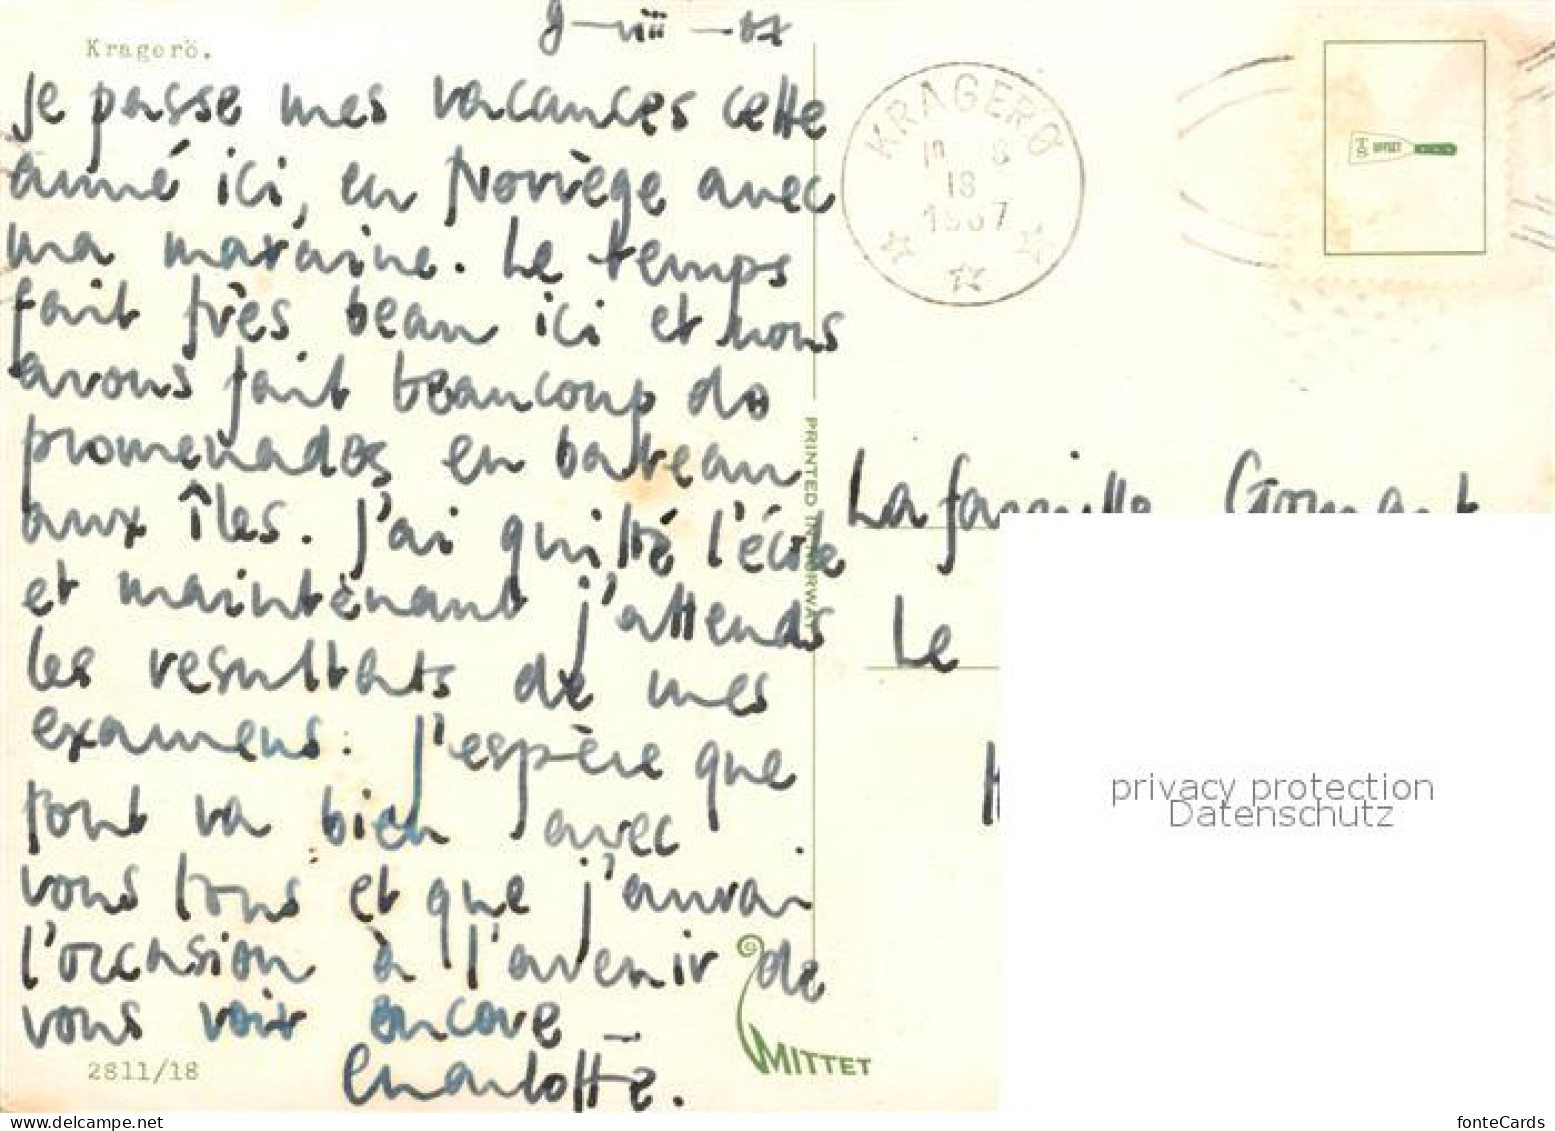 Kragerö.
9-viii-67
Je passe mes vacances cette
anné ici, en Norvège avec
ma marraine. Le temps
fait très beau ici et nous
avons fait beaucoup de
promenades en bateau
aux îles. J'ai quitté l'école
et maintenant j'attends
les resultats de mes
examens. J'espère que
tout va bien avec
vous tous et que j'aurai
l'occasion à l'avenir de
vous voir encore —
Charlotte.
2811/18
MITTET
PRINTED IN NORWAY
KRAGERØ
18
1967
OFFSET
La famille
Le
privacy protection
Datenschutz
www.delcampe.net
fonteCards